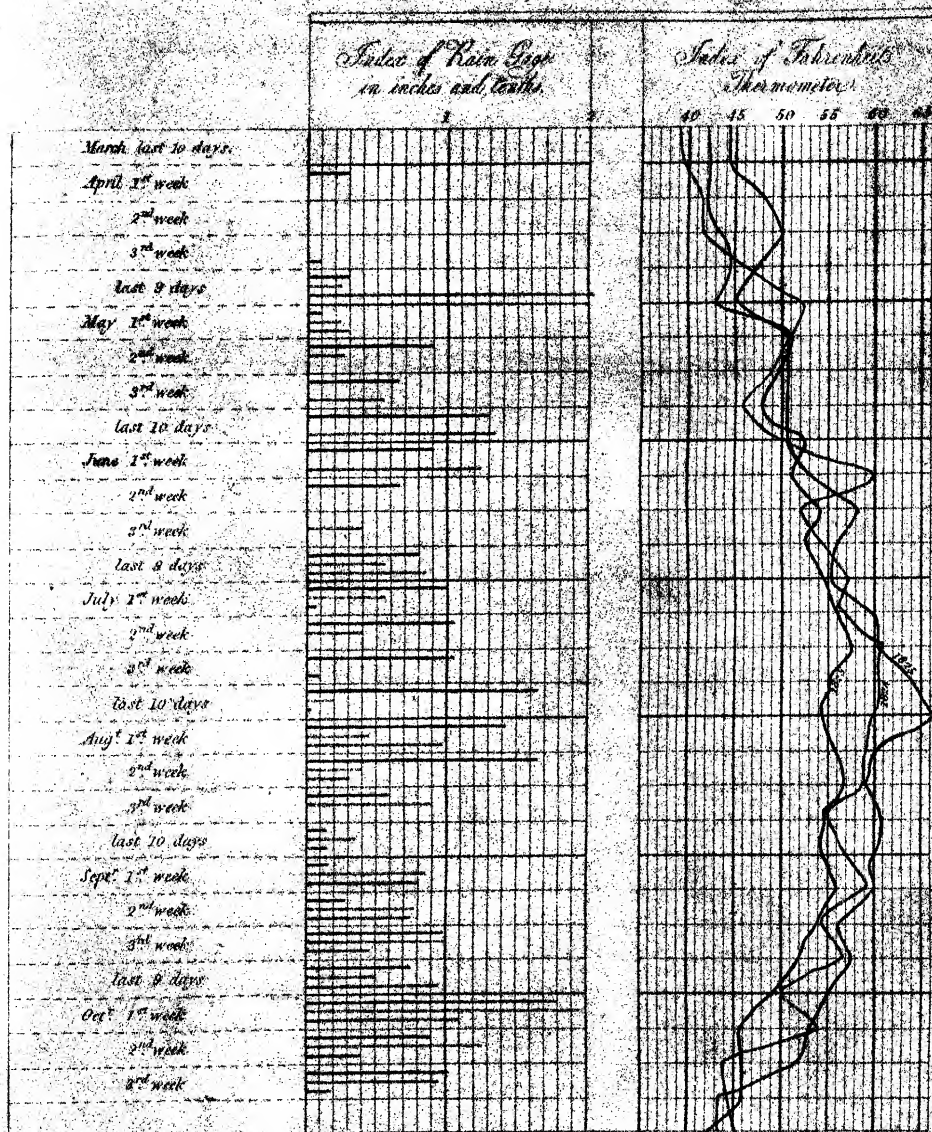 Index of Rain Gage
in inches and tenths.
1 2
Index of Fahrenheits
Thermometer.
40 45 50 55 60 65
March last 10 days.
April 1st week
2nd week
3rd week
last 9 days
May 1st week
2nd week
3rd week
last 10 days
June 1st week
2nd week
3rd week
last 8 days
July 1st week
2nd week
3rd week
last 10 days
Augt 1st week
2nd week
3rd week
last 10 days
Septr 1st week
2nd week
3rd week
last 9 days
Octr 1st week
2nd week
3rd week
1825